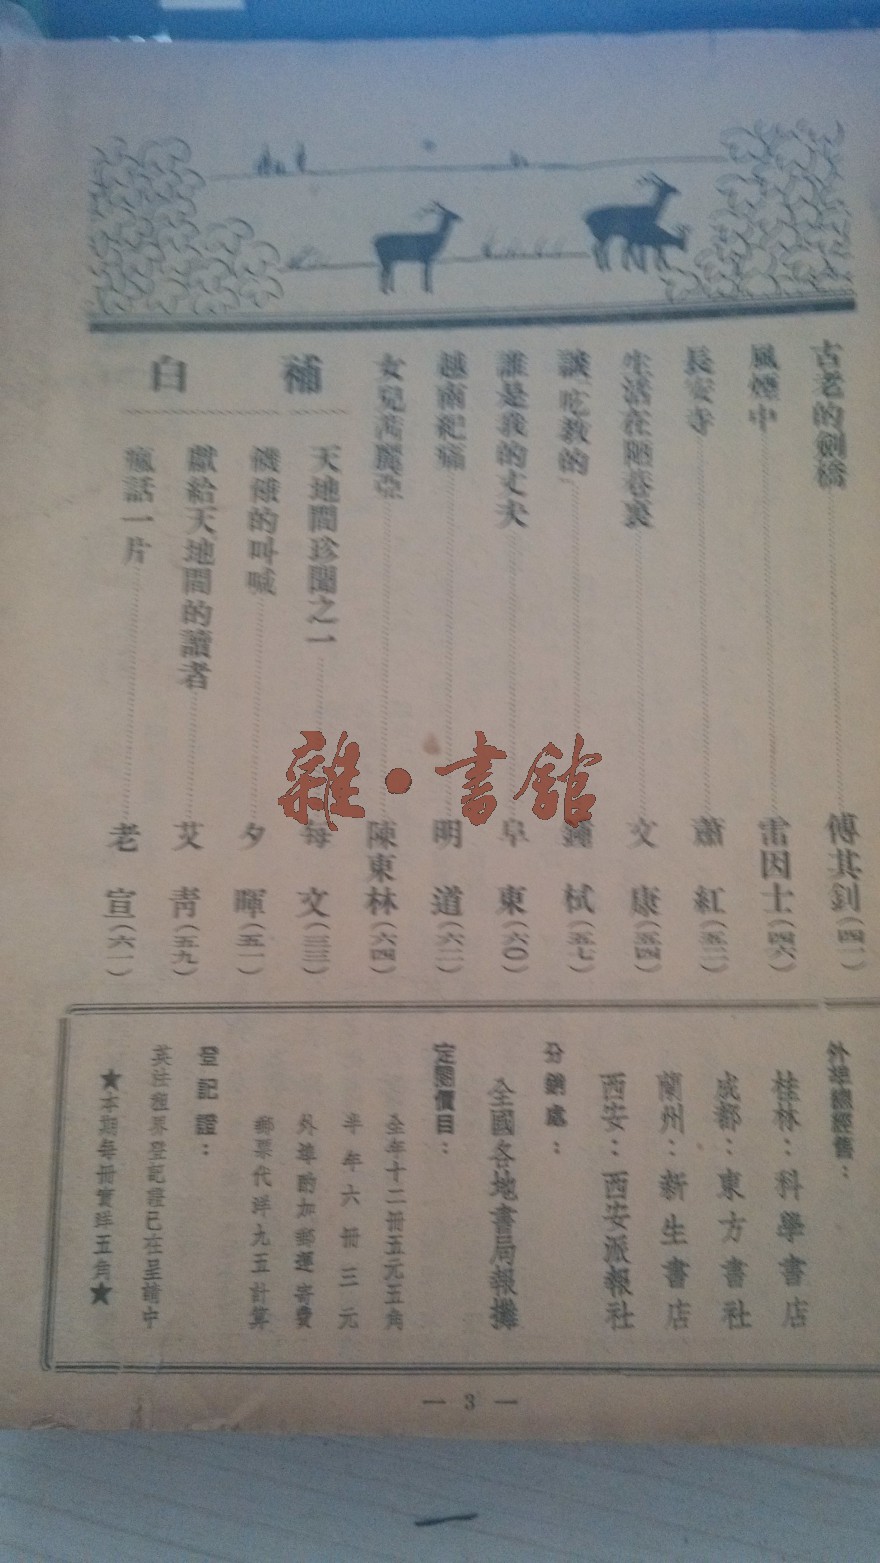 古老的劍橋 傅其釗(四一)
風煙中 雷因士(四六)
長安寺 蕭紅(五二)
生活在陋巷裏 文康(五四)
談「吃教的」 鍾栻(五七)
誰是我的丈夫 阜東(六〇)
越南創痛 明道(六二)
女兒茜麗亞 陳東林(六四)
補白
天地間珍聞之一 每文(三三)
饑餓的叫喊 夕暉(五一)
獻給天地間的讀者 艾青(五九)
瘋話一片 老宣(六一)
雜·書館
外埠總經售：
桂林：科學書店
成都：東方書社
蘭州：新生書店
西安：西安派報社
分銷處：
全國各地書局報攤
定閱價目：
全年十二冊五元五角
半年六冊三元
外埠酌加郵運寄費
郵票代洋九五計算
登記證：
英法租界登記證已在呈請中
★本期每冊實洋五角★
— 3 —